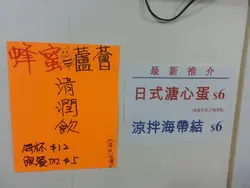 蜂蜜蘆薈
清潤飲
每杯$12
跟餐加$5
最新推介
日式溏心蛋 $6
涼拌海帶結 $6